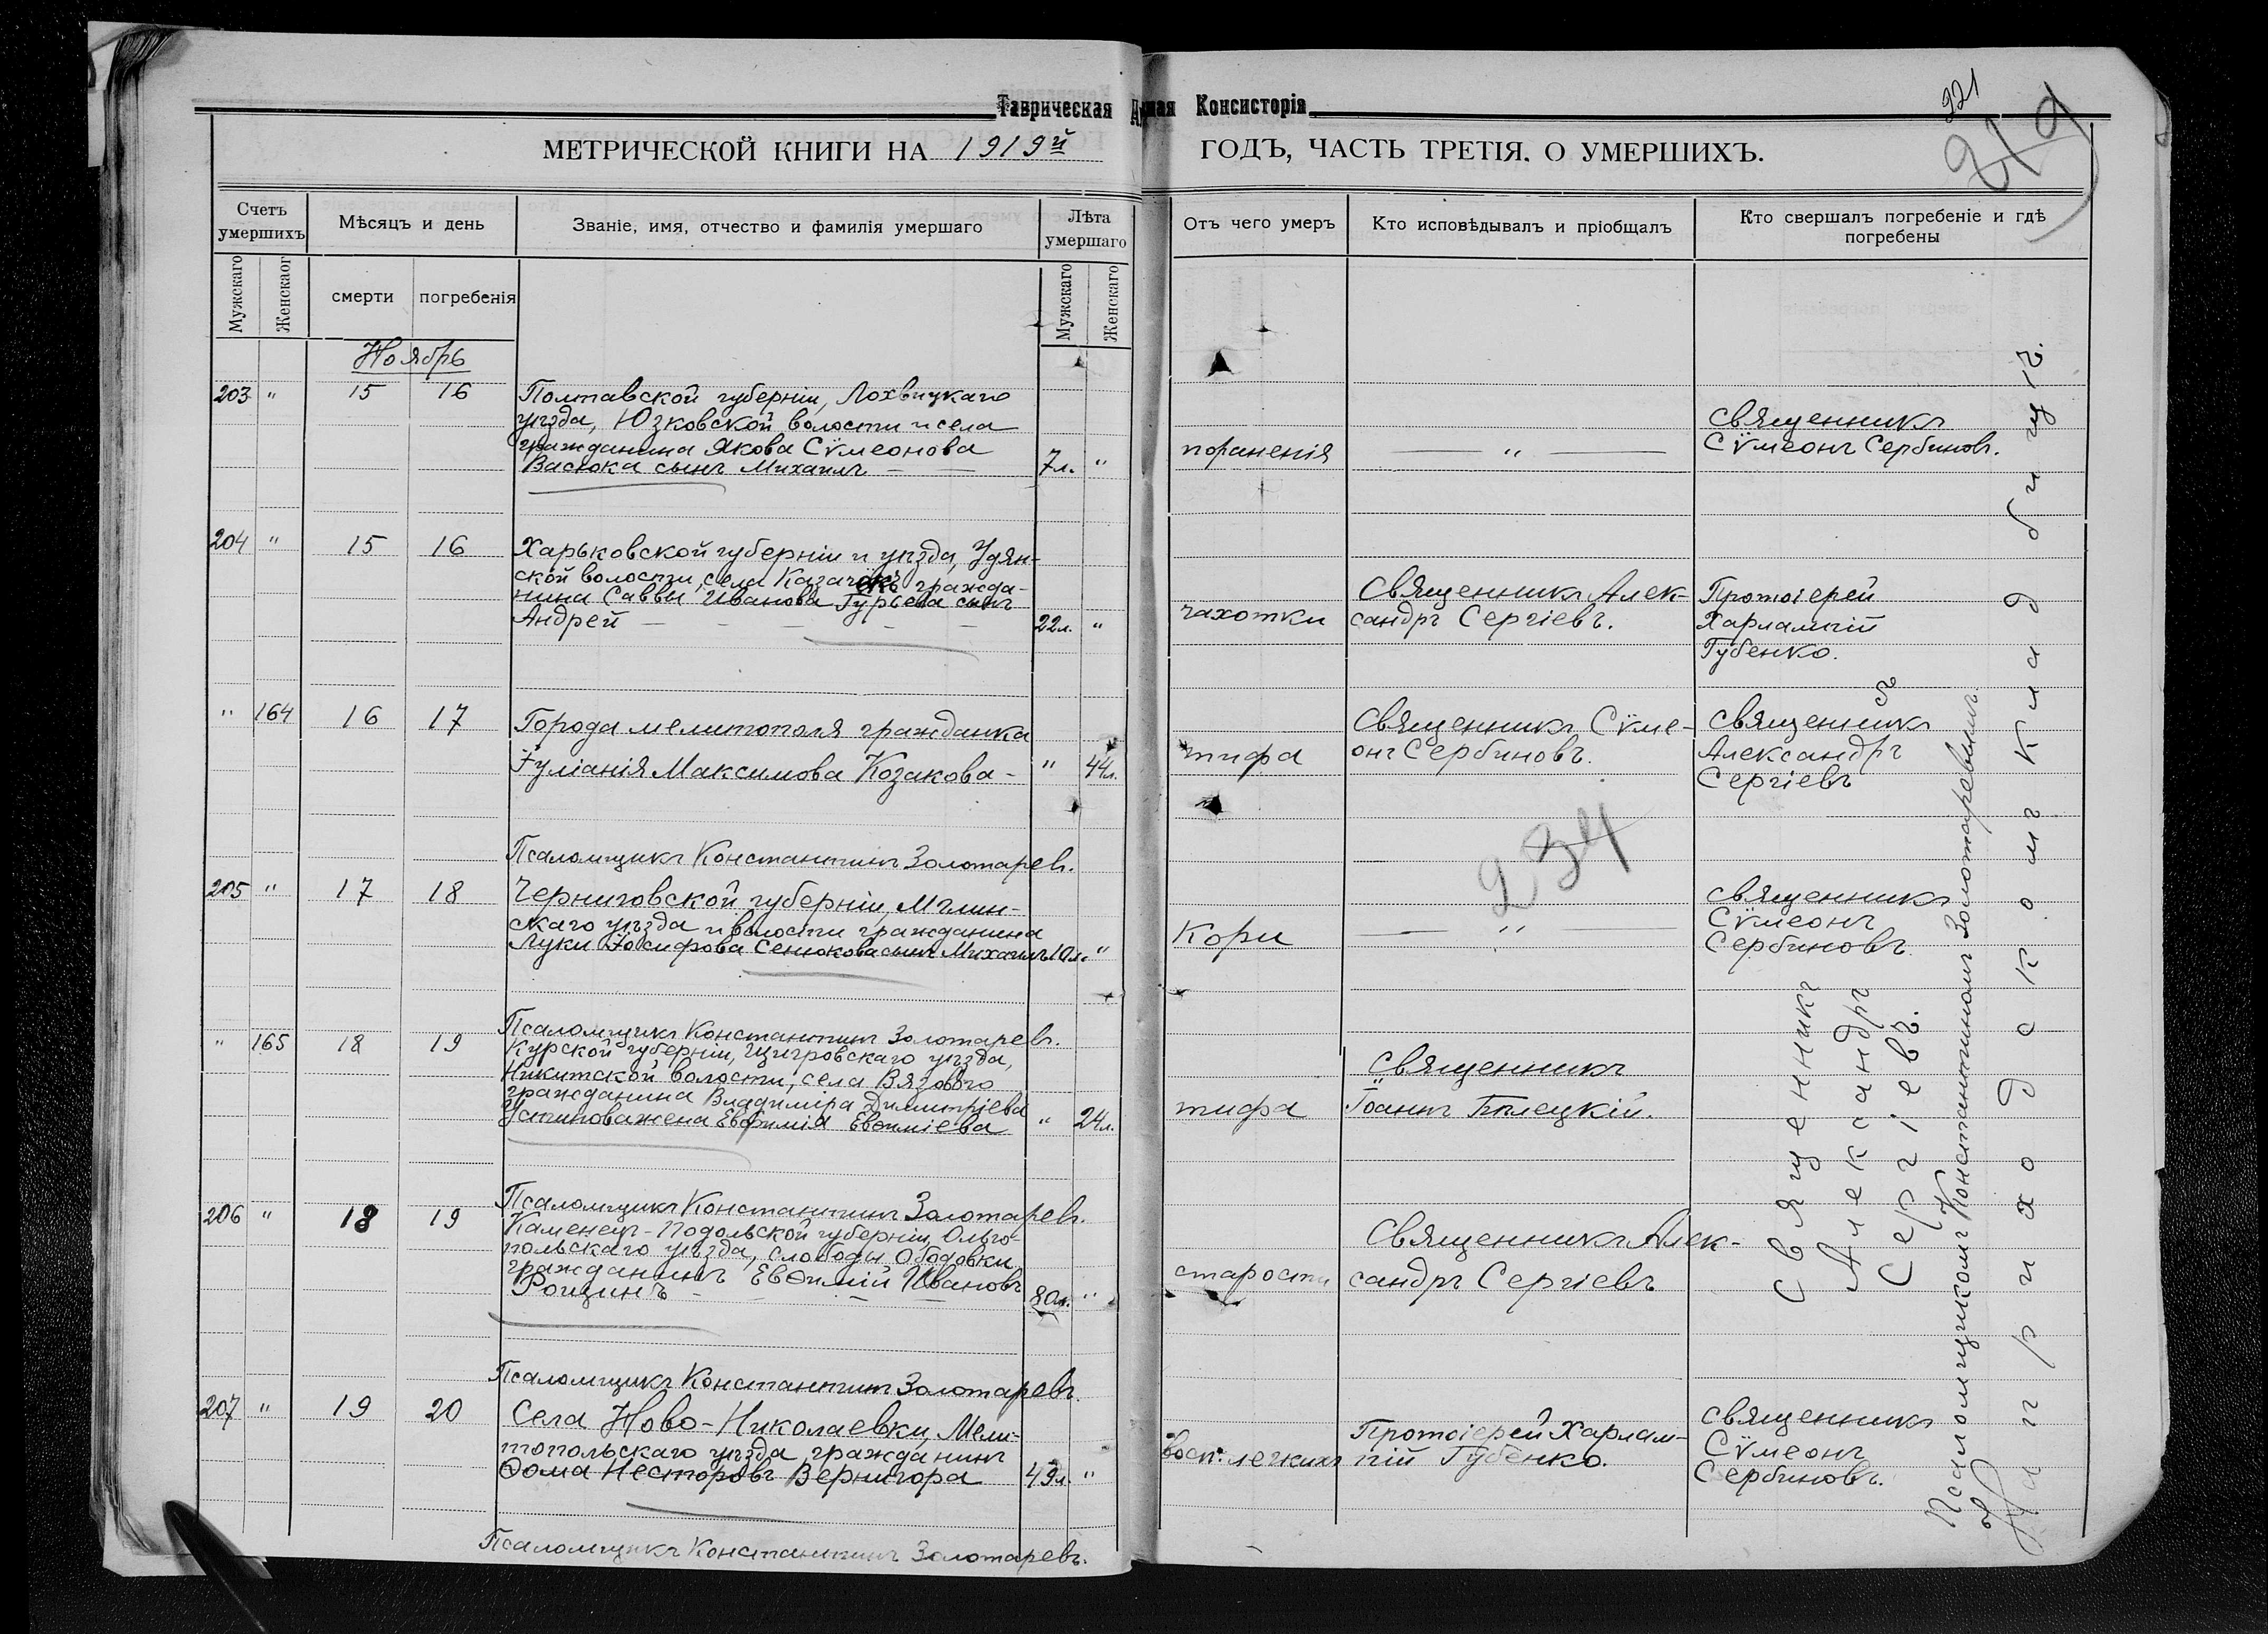 Таврическая Духовная Консисторія
МЕТРИЧЕСКОЙ КНИГИ НА 1919й ГОДЪ, ЧАСТЬ ТРЕТІЯ. О УМЕРШИХЪ.
221
219
Счетъ умершихъ
Мѣсяцъ и день
Званіе, имя, отчество и фамилія умершаго
Лѣта умершаго
Отъ чего умеръ
Кто исповѣдывалъ и пріобщалъ
Кто свершалъ погребеніе и гдѣ погребены
Мужскаго
Женскаог
смерти
погребенія
Мужскаго
Женскаго
Ноябрь
203 " 15 16
Полтавской губерніи, Лохвицкаго
уѣзда, Юзковской волости и села
гражданина Якова Сѵмеонова
Васюка сынъ Михаилъ
7л. "
пораненія
"
Священникъ
Сѵмеонъ Сербиновъ.
204 " 15 16
Харьковской губерніи и уѣзда, Удян-
ской волости, села Казачекъ гражда-
нина Саввы Иванова Гурьева сынъ
Андрей
22л. "
чахотки
Священникъ Алек-
сандръ Сергіевъ.
Протоіерей
Харлампій
Губенко.
" 164 16 17
Города Мелитополя гражданка
Іуліанія Максимова Козакова
" 44л.
тифа
Священникъ Сѵме-
онъ Сербиновъ.
Священникъ
Александръ
Сергіевъ
Псаломщикъ Константинъ Золотаревъ.
234
205 " 17 18
Черниговской губерніи, Мглин-
скаго уѣзда и волости гражданина
Луки Іосифова Сенюкова сынъ Михаилъ 10л. "
Кори
"
Священникъ
Сѵмеонъ
Сербиновъ.
Псаломщикъ Константинъ Золотаревъ.
" 165 18 19
Курской губерніи, Щигровскаго уѣзда,
Никитской волости, села Вязового
гражданина Владиміра Димитріева
Устинова жена Евфимія Евѳиміева
" 24л.
тифа
Священникъ
Іоаннъ Бѣлецкій.
Священникъ
Александръ
Сергіевъ.
Псаломщикъ Константинъ Золотаревъ.
206 " 18 19
Каменец-Подольской губерніи, Ольго-
польскаго уѣзда, слободы Ободовки
гражданинъ Евѳимій Ивановъ
Рощинъ
80л. "
старости
Священникъ Алек-
сандръ Сергіевъ
Псаломщикъ Константинъ Золотаревъ.
207 " 19 20
Села Ново-Николаевки, Мели-
топольскаго уѣзда гражданинъ
Ѳома Несторовъ Вернигора
49л. "
восп. легкихъ
Протоіерей Харлам-
пій Губенко.
Священникъ
Сѵмеонъ
Сербиновъ.
Псаломщикъ Константинъ Золотаревъ.
Съ псаломщикомъ Константиномъ Золотаревымъ
На приходскомъ кладбищѣ.